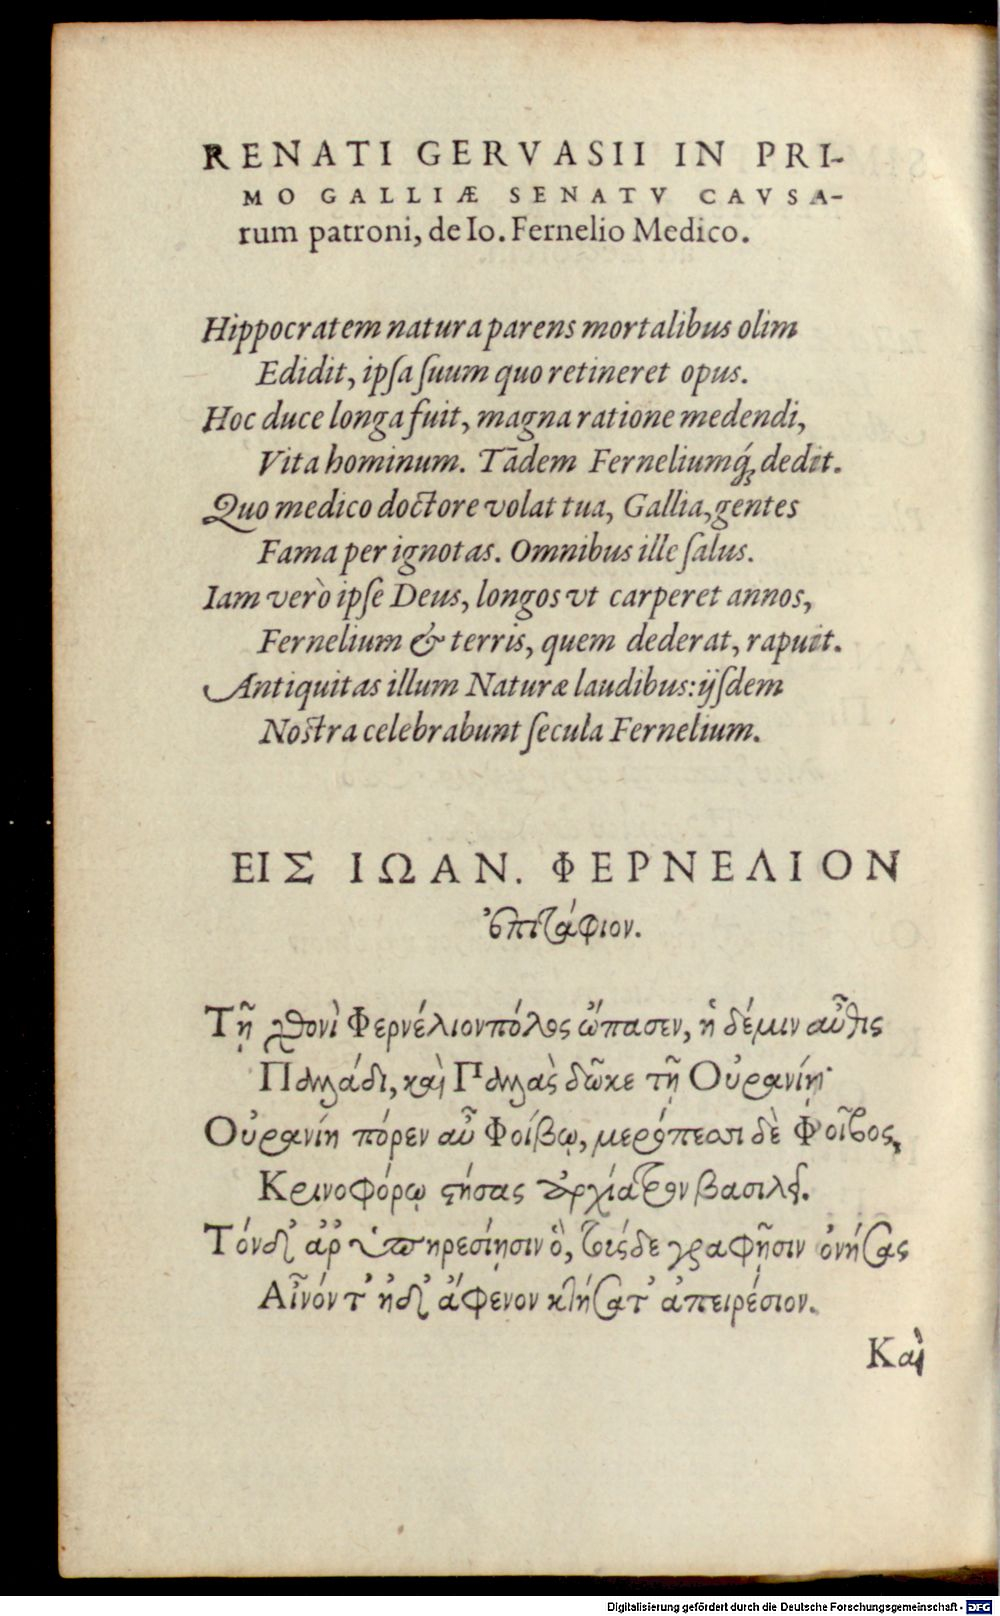 RENATI GERVASII IN PRI-
MO GALLIÆ SENATV CAVSA-
rum patroni, de Io. Fernelio Medico.
Hippocratem natura parens mortalibus olim
Edidit, ipſa ſuum quo retineret opus.
Hoc duce longa fuit, magna ratione medendi,
Vita hominum. Tãdem Ferneliumq́; dedit.
Quo medico doctore volat tua, Gallia, gentes
Fama per ignotas. Omnibus ille ſalus.
Iam verò ipſe Deus, longos vt carperet annos,
Fernelium & terris, quem dederat, rapuit.
Antiquitas illum Naturæ laudibus: ijſdem
Noſtra celebrabunt ſecula Fernelium.
ΕΙΣ ΙΩΑΝ. ΦΕΡΝΕΛΙΟΝ
ἐπιτάφιον.
Τῇ χθονὶ Φερνέλιον πόλος ὤπασεν, ἡ δέ μιν αὖθις
Παλλάδι, καὶ Παλλὰς δῶκε τῇ Οὐρανίῃ·
Οὐρανίη πόρεν αὖ Φοίβῳ, μερόπεσσι δὲ Φοῖβος,
Κρινοφόρῳ στήσας ἀρχίατρον βασιλεῖ.
Τόνδ' ἀρ' ὑπηρεσίῃσιν ὅ, τοῖς δε γραφῇσιν ὀνήσας
Αἶνόν τ' ἠδ' ἄφενον κλήσατ' ἀπειρέσιον.
Καὶ
Digitalisierung gefördert durch die Deutsche Forschungsgemeinschaft - DFG